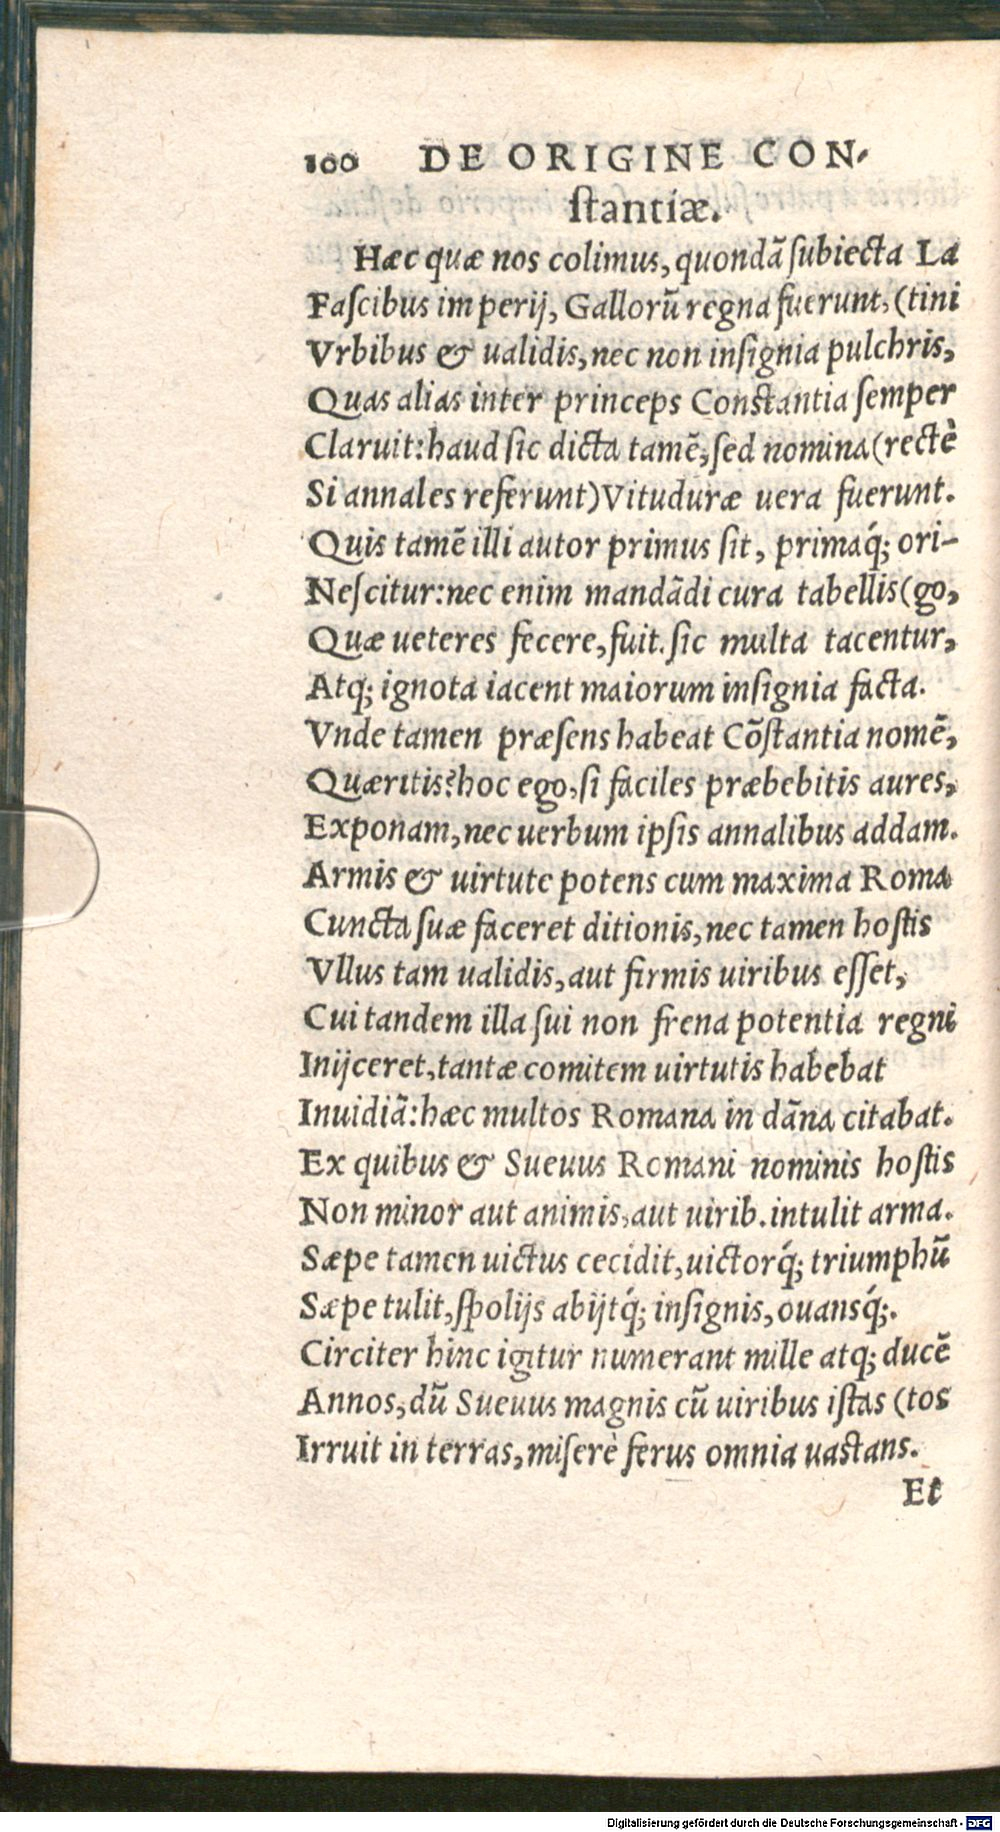 100 DE ORIGINE CON-
ſtantiæ.
Hæc quæ nos colimus, quondã ſubiecta La
Faſcibus imperij, Gallorũ regna fuerunt, (tini
Vrbibus & ualidis, nec non inſignia pulchris,
Quas alias inter princeps Conſtantia ſemper
Claruit: haud ſic dicta tamẽ, ſed nomina (rectè
Si annales referunt) Vitoduræ uera fuerunt.
Quis tamẽ illi autor primus ſit, primaq́; ori-
Neſcitur: nec enim mandãdi cura tabellis (go,
Quæ ueteres fecere, fuit. ſic multa tacentur,
Atq; ignota iacent maiorum inſignia facta.
Vnde tamen præſens habeat Cõſtantia nomẽ,
Quæritis? hoc ego, ſi faciles præbebitis aures,
Exponam, nec uerbum ipſis annalibus addam.
Armis & uirtute potens cum maxima Roma
Cuncta ſuæ faceret ditionis, nec tamen hoſtis
Vllus tam ualidis, aut firmis uiribus eſſet,
Cui tandem illa ſui non frena potentia regni
Inijceret, tantæ comitem uirtutis habebat
Inuidiã: hæc multos Romana in dãna citabat.
Ex quibus & Sueuus Romani nominis hoſtis
Non minor aut animis, aut uirib. intulit arma.
Sæpe tamen uictus cecidit, uictorq́; triumphũ
Sæpe tulit, ſpolijs abijtq́; inſignis, ouansq́;.
Circiter hinc igitur numerant mille atq; ducẽ
Annos, dũ Sueuus magnis cũ uiribus iſtas (tos
Irruit in terras, miſerè ferus omnia uaſtans.
Et
Digitalisierung gefördert durch die Deutsche Forschungsgemeinschaft - DFG